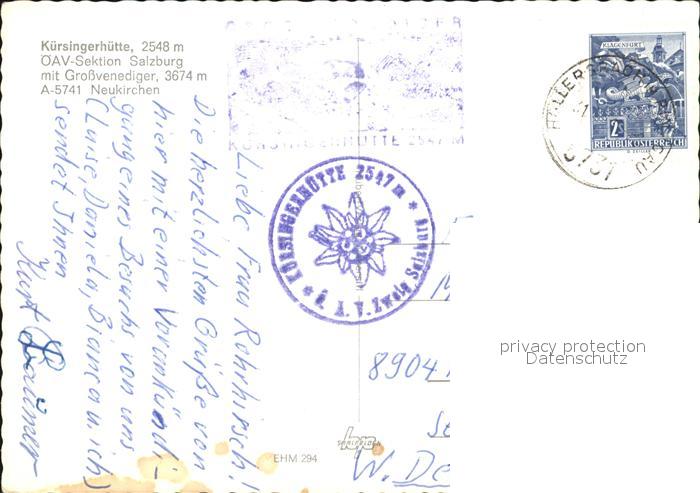 Kürsingerhütte, 2548 m
ÖAV-Sektion Salzburg
mit Großvenediger, 3674 m
A-5741 Neukirchen
KÜRSINGERHÜTTE 2547 M
KÜRSINGERHÜTTE 2547 m
Ö. A. V. Zweig Salzburg
KLAGENFURT
2S
REPUBLIK ÖSTERREICH
5731
Liebe Frau Rohrhirsch!
Die herzlichsten Grüße von
hier mit einer Vorankündi-
gung eines Besuchs von uns
(Luise, Daniela, Bianca u. ich)
sendet Ihnen
Kurt
8904
W. De
privacy protection
Datenschutz
EHM 294